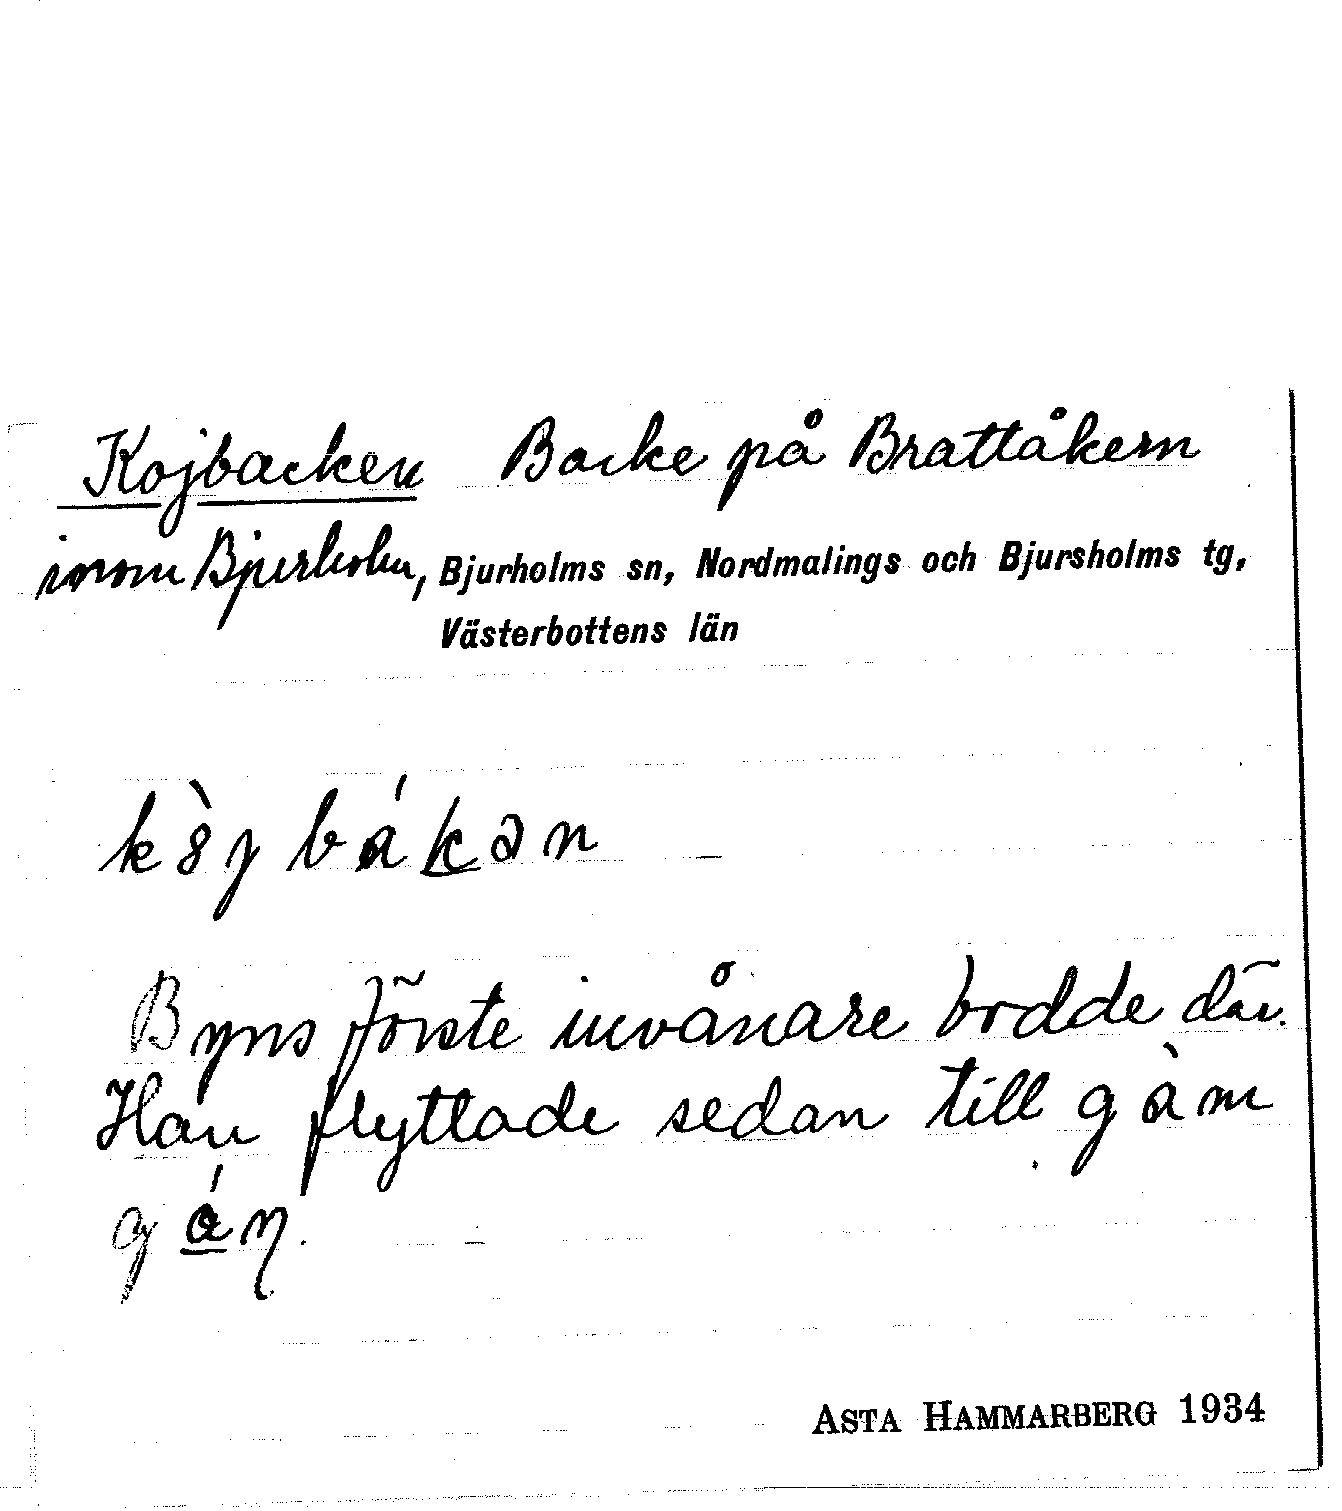 Kojbacken Backe på Brattåkern
inom Bjurholm, Bjurholms sn, Nordmalings och Bjursholms tg,
Västerbottens län
kò̀ȷ bákan
Byns förste invånare bodde där.
Han flyttade sedan till gàm
gáŋ.
ASTA HAMMARBERG 1934